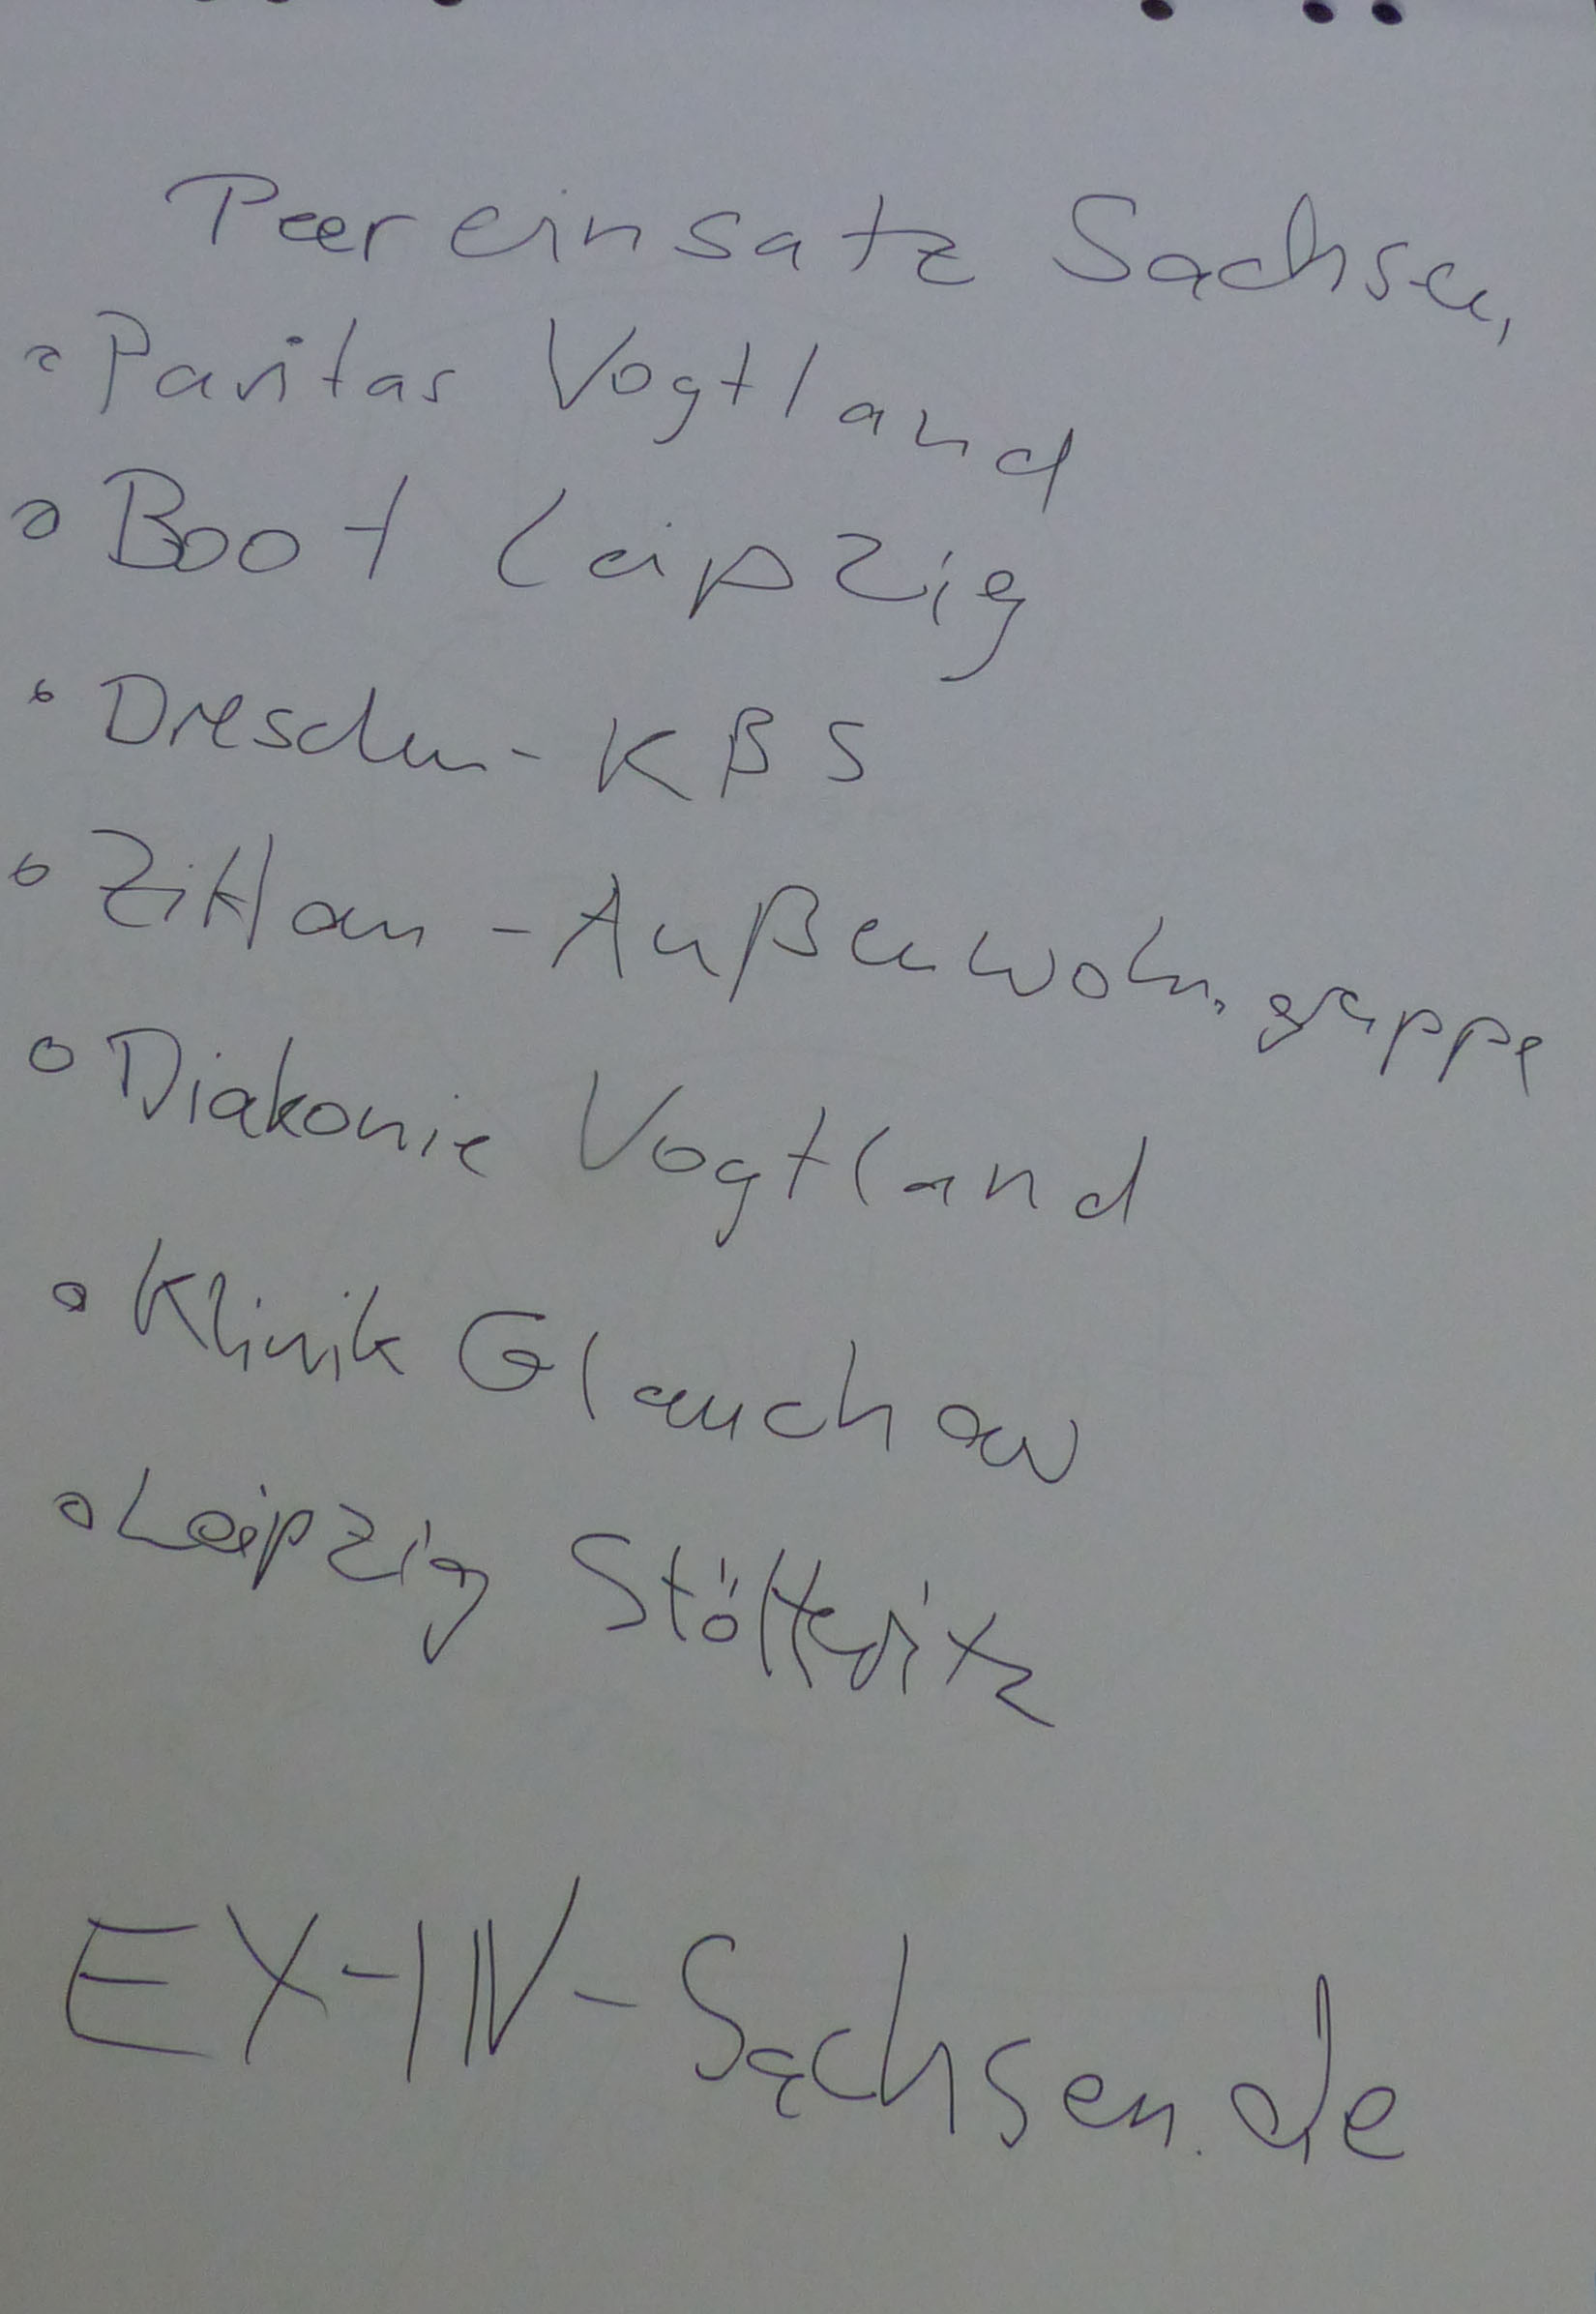 Peereinsatz Sachsen
Paritas Vogtland
Boot Leipzig
Dresden - KBS
Zittau - Außenwohngruppe
Diakonie Vogtland
Klinik Glauchau
Leipzig Stötteritz
EX-IN-Sachsen.de